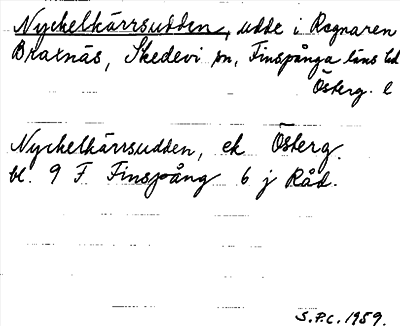 Nyckelkärrsudden, udde i Regnaren
Braxnäs, Skedevi sn, Finspånga läns hd
Österg. l
Nyckelkärrsudden, ek Österg.
bl. 9 F Finspång 6 j Råd.
S.P.C. 1959.